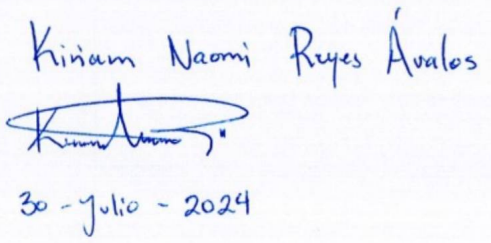 Kiriam Naomi Reyes Ávalos
30 - Julio - 2024